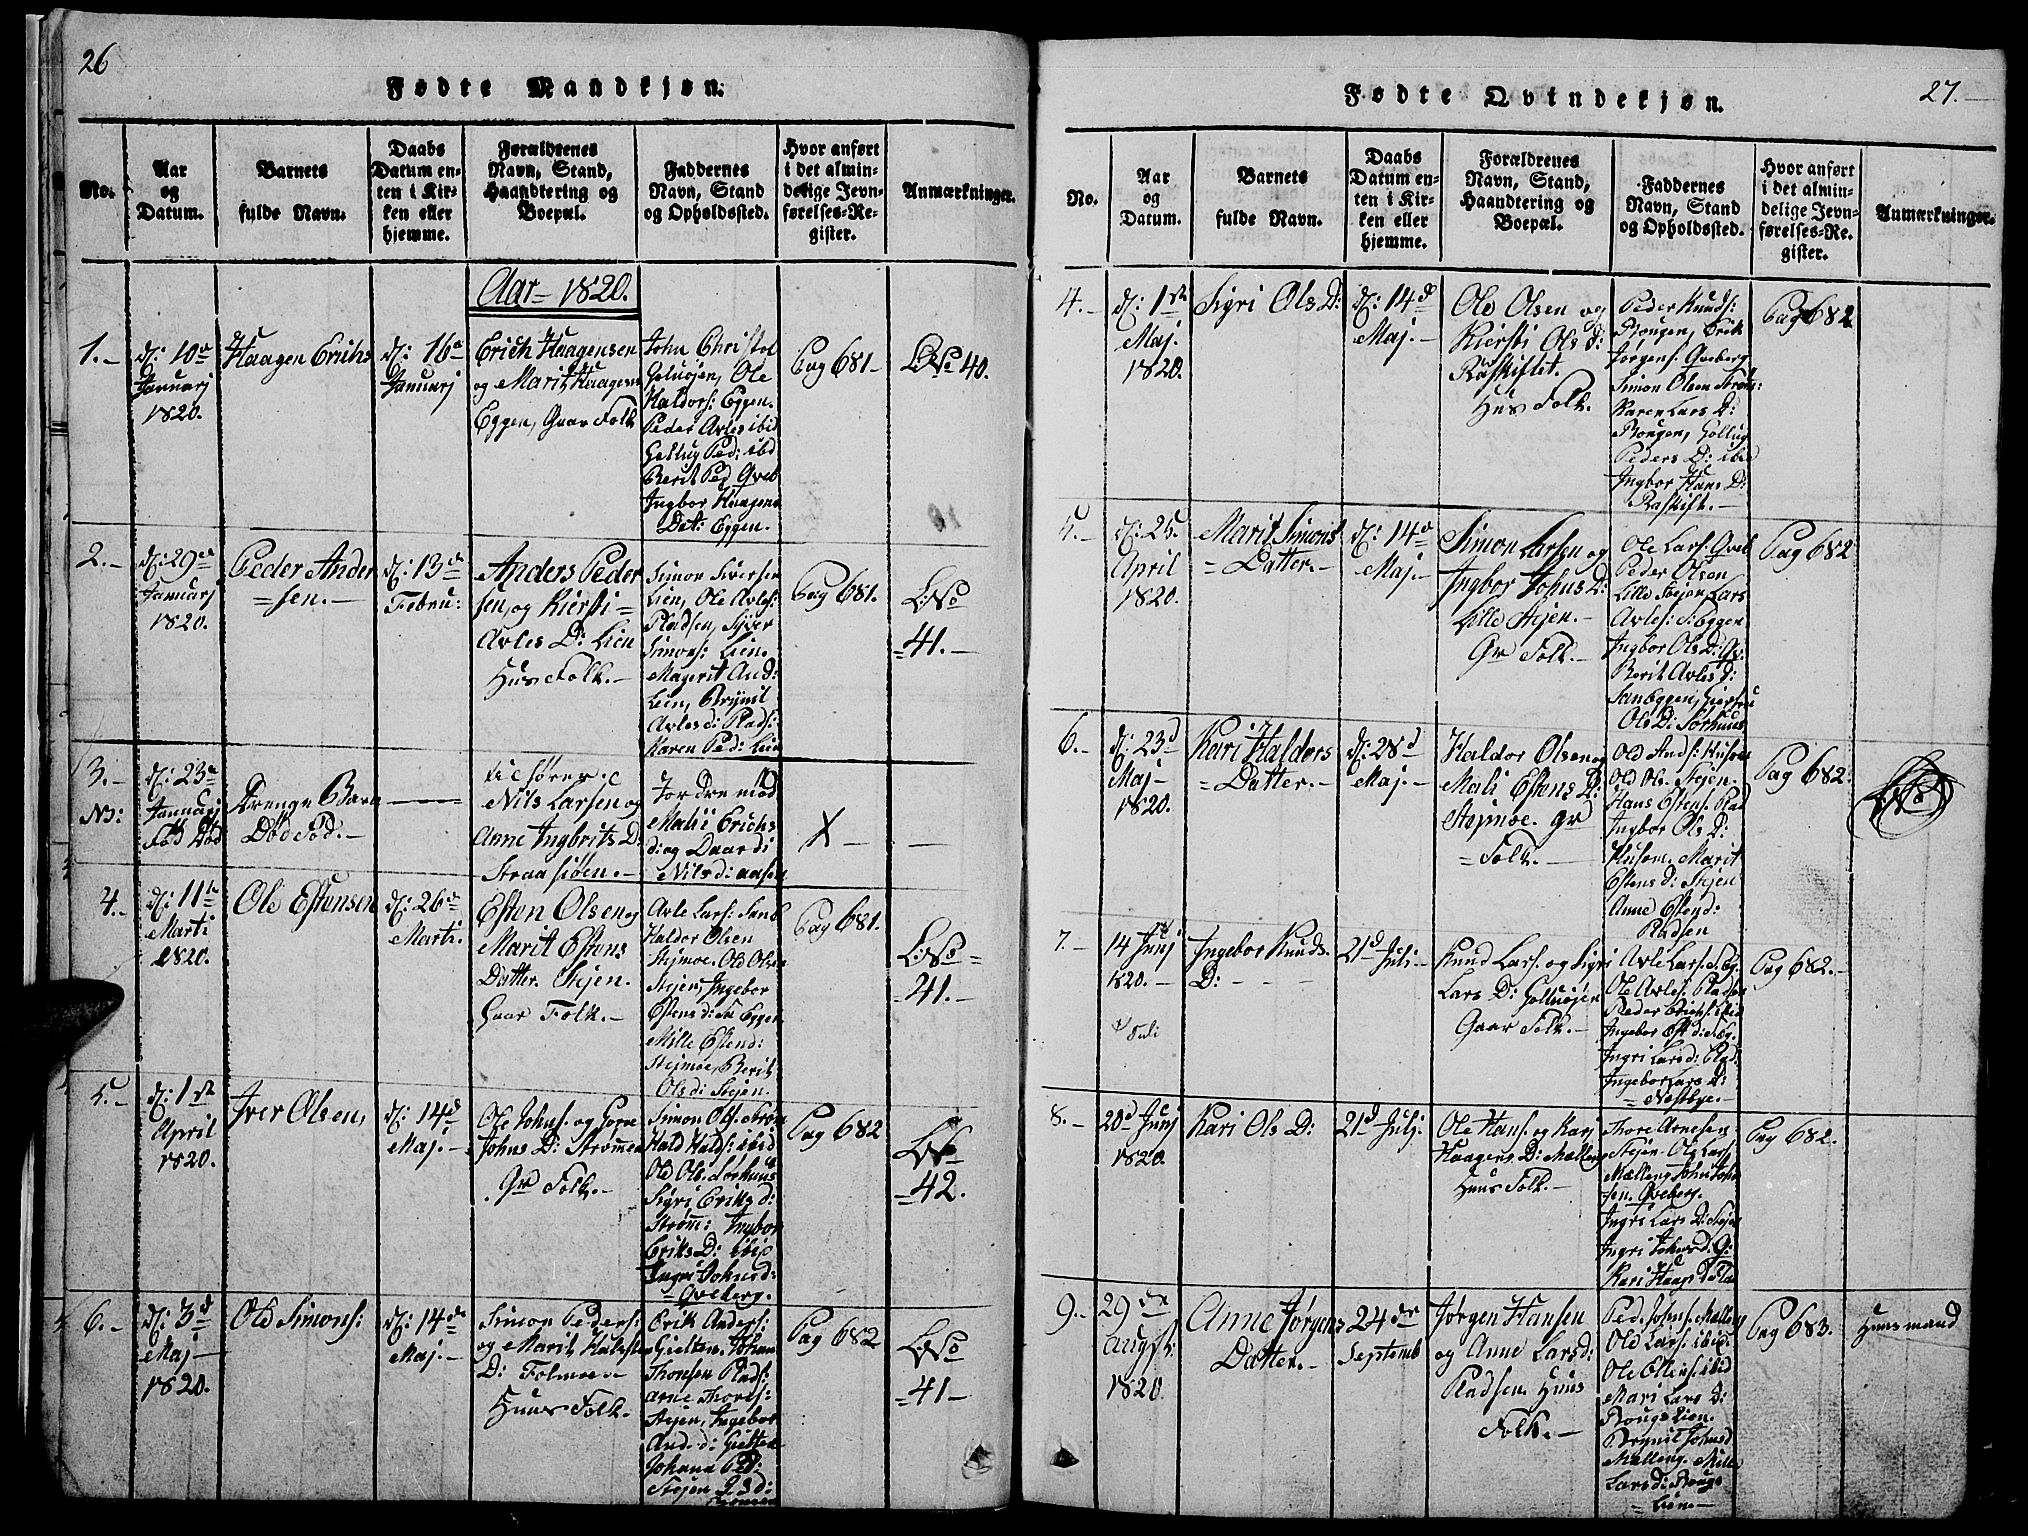 26
Fødte Mandkjøn.
No.
Aar
og
Datum.
Barnets
fulde Navn.
Daabs
Datum en-
ten i Kir-
ken eller
hjemme.
Forældrenes
Navn, Stand,
Haandtering og
Boepæl.
Faddernes
Navn, Stand
og Opholdssted.
Hvor anført
i det almin-
delige Jevn-
førelses-Re-
gister.
Anmærkninger.
Aar = 1820.
1.-
d: 10de
Januarj
1820.
Haagen Erichs
d: 16de
Januarj
Erich Haagensen
og Marit Haagens
Eggen, Gaar Folk
John Christof
Ole
Haldors: Eggen.
Peder Avles ibid
Ped: ibd
Berit Ped Qveb
Ingbor Haagens
Dat: Eggen.
Pag 681-
LNo 40.
2.-
d: 29de
Januarj
1820.
Peder Ander
=sen.-
d: 13de
Febru:
Anders Peder
sen, og Kiersti=
Avles D: Lien
Hus Folk.-
Simon Siversen
Lien, Ole Avles:
Pladsen, Siver
Simons: Lien.
Magerit And:
Lien, Brynil
Avles d: Plads:
Karen Ped: Lien
Pag 681.
LNo
=41.-
3.-
N3:
d: 23de
Januarj
Fød Død
Drenge Barn
Død Fød.-
Nils Larsen og
Anne Ingbrits D:
Straasiøen.-
Jordre mod
Mali Erichs
d: og
Nils d: aasen
X -
4.-
d: 11te
Marti
1820.
Ole Estensen
d: 26de
Marti.
Esten Olsen og
Marit Estens
Datter. Stejen.
Gaar Folk.-
Avle Lars:
Haldor Olsen
Stejmoe. Ole Olsen
Stejen, Ingebor
Estens d: Sa Eggen
Mille Estend:
Stejmoe, Berit
Ols d: Stejen.
Pag 681.
LNo=
=41.-
5.-
d: 1ste
April
1820.
Iver Olsen,
d: 14d
Maj.-
Ole Johns: og Gore
Johns D: Strømmen
Gr Folk.-
Simon Ols: Strøm
Hald Hald: ibid
Old Ols: Sørhuus
Sigri Eriks d:
Strøm: Ingbor
Eriks D: ibid
Ingri Johns d:
=Qveberg.-
Pag 682
LNo
=42.
6.-
d: 3d
Maj -
1820.
Old Simons:
d: 14de
Maj.-
Simon Peders:
og Marit Halste
D: Folmoe.-
Huus Folk.
Erik Anders:
Gielten. Johan
Thonsen Plads:
Arne Thores:
Stejen, Ingebor
And. d: Gielten
Johana Ped:
Pag 682
LNo
=41-
27.-
Fødte Qvindekjøn.
No.
Aar
og
Datum.
Barnets
fulde Navn.
Daabs
Datum en-
ten i Kir-
ken eller
hjemme.
Forældrenes
Navn, Stand,
Haandtering og
Boepæl.
Faddernes
Navn, Stand
og Opholdssted.
Hvor anført
i det almin-
delige Jevn-
førelses-Re-
gister.
Anmærkninger.
4.-
d: 1ste
Maj.
1820.
Sigri Ols D:
d: 14d
Maj.-
Ole Olsen og
Kiersti Ols D:
Raskiftet.
Hus Folk.
Peder Knuds:
Bougen, Erik
Jørgens: Qveberg
Simon Olsen Strøm:
Karen Lars D:
Bougen,
Peders D: ibid
Ingbor Hans D:
Raskift.-
Pag 682
5.-
d: 25.
April
1820.
Marit Simons
=Datter.-
d: 14de
Maj.-
Simon Larsen og
Ingbor Johns D:
Lille Stejen.-
Gr Folk.-
Ole Lars: Qveb
Peder Olsen
Lille Stejen, Lars
Avles: S: Eggen
Ingbor Ols D: Qv:
Berit Avles d:
Ols D: Sørhuus
Pag 682
6.-
d: 23d
Maj-
1820.
Kari Haldors
=Datter.-
d: 28d
Maj.-
Haldor Olsen og
Mali Estens D:
Stejmoe. Gr
=Folk.-
Old And: Husom
Old Ols: Stejen.
Hans Estens: Plad
Ingbor Ols D:
Husom. Marit
Estens d: Stejen
Anne Estend:
Pladsen
Pag 682.
LNo
7.-
14 Junj
1820.-
Juli
Ingebor Knuds.
D: - - -
21d Juli-
Knud Lars: og Sigri
Lars D:
Gaar Folk.-
Avle Lars: S. Eg.
Ole Avles: Pladsen
Peder Erichs: ibid
Ingebor Est d: S. Eg.
Ingri Lars d: Plad:
Ingebor Lars D:
=Nestbye.-
Pag 682.-
8.-
20d Junj
1820.
Kari Ols D:
21d Julj.
Ole Hans: og Kari
Haagens D: Mælleng
Huus Folk.-
Thore Arnesen:
Stejen. Ole Lars
Mælleng John John
sen. Qveberg.
Ingri Lars D: Stejen
Ingri Johns d: Q:
Pag 682.
9.-
29de
Augst:
1820.
Anne Jørgens
Datter.-
24de
Septemb
Jørgen Hansen
og Anne Lars d:
Pladsen Huus
Folk.-
Ped: Johns: Mælleng
Old Lars: ibid:
Ole Ellens: ibid
Mari Lars D:
Bougs Lien.
Brynil Johns d
Mælleng. Mille
Lars d: Bougs
=Lien.-
Pag 683.
Huusmand